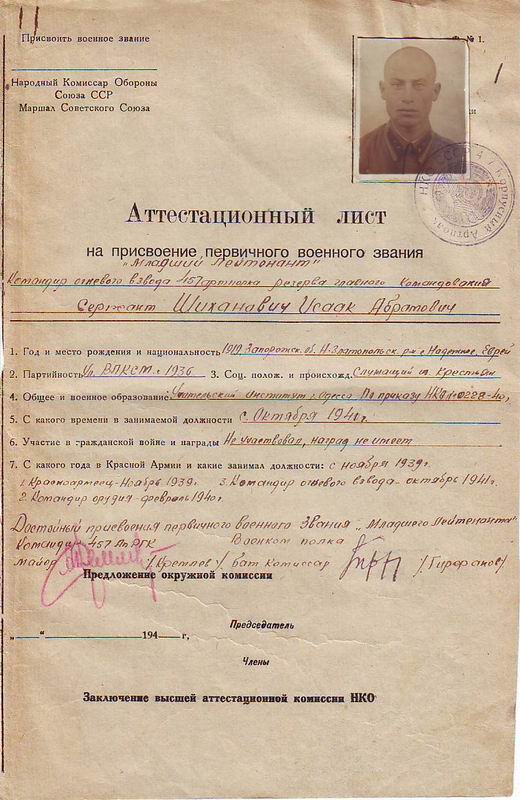 Присвоить военное звание
Ф. № 1.
Народный Комиссар Обороны
Союза ССР
Маршал Советского Союза
1
Аттестационный лист
на присвоение первичного военного звания
"Младший Лейтенант"
Командир огневого взвода 457 артполка резерва главного командования
Сержант Шиханович Исаак Абрамович
1. Год и место рождения и национальность 1919, Запорожск. об. Н. Златопольск. р-н с. Надежное, Еврей
2. Партийность Чл. ВЛКСМ с 1936 3. Соц. полож. и происхожд. Служащий из Крестьян
4. Общее и военное образование Учительский Институт г. Одесса По приказу НКО № 0228-40г.
5. С какого времени в занимаемой должности с Октября 1941г.
6. Участие в гражданской войне и награды Не участвовал, наград не имеет
7. С какого года в Красной Армии и какие занимал должности: с ноября 1939г.
1. Красноармеец-Ноябрь 1939г. 3. Командир огневого взвода-октябрь 1941г.
2. Командир орудия-февраль 1940г.
Достойный присвоения первичного военного звания „Младшего Лейтенанта"
Командир 457 Ап РГК Военком полка
майор /Кремлов/ бат. комиссар /Гирфанов/
Предложение окружной комиссии
Председатель
„ " 194 г,
Члены
Заключение высшей аттестационной комиссии НКО